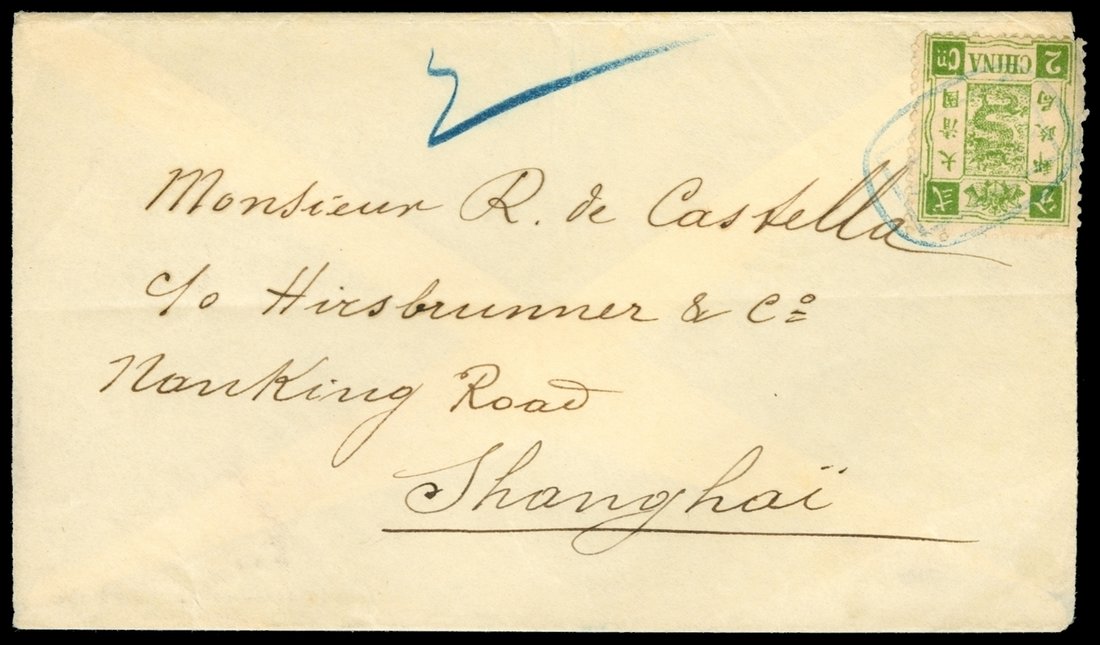 Monsieur R. de Castella
c/o Hirsbrunner & Co
Nanking Road
Shanghaï
2 CHINA Cn:
大清國
郵政局
貳 分